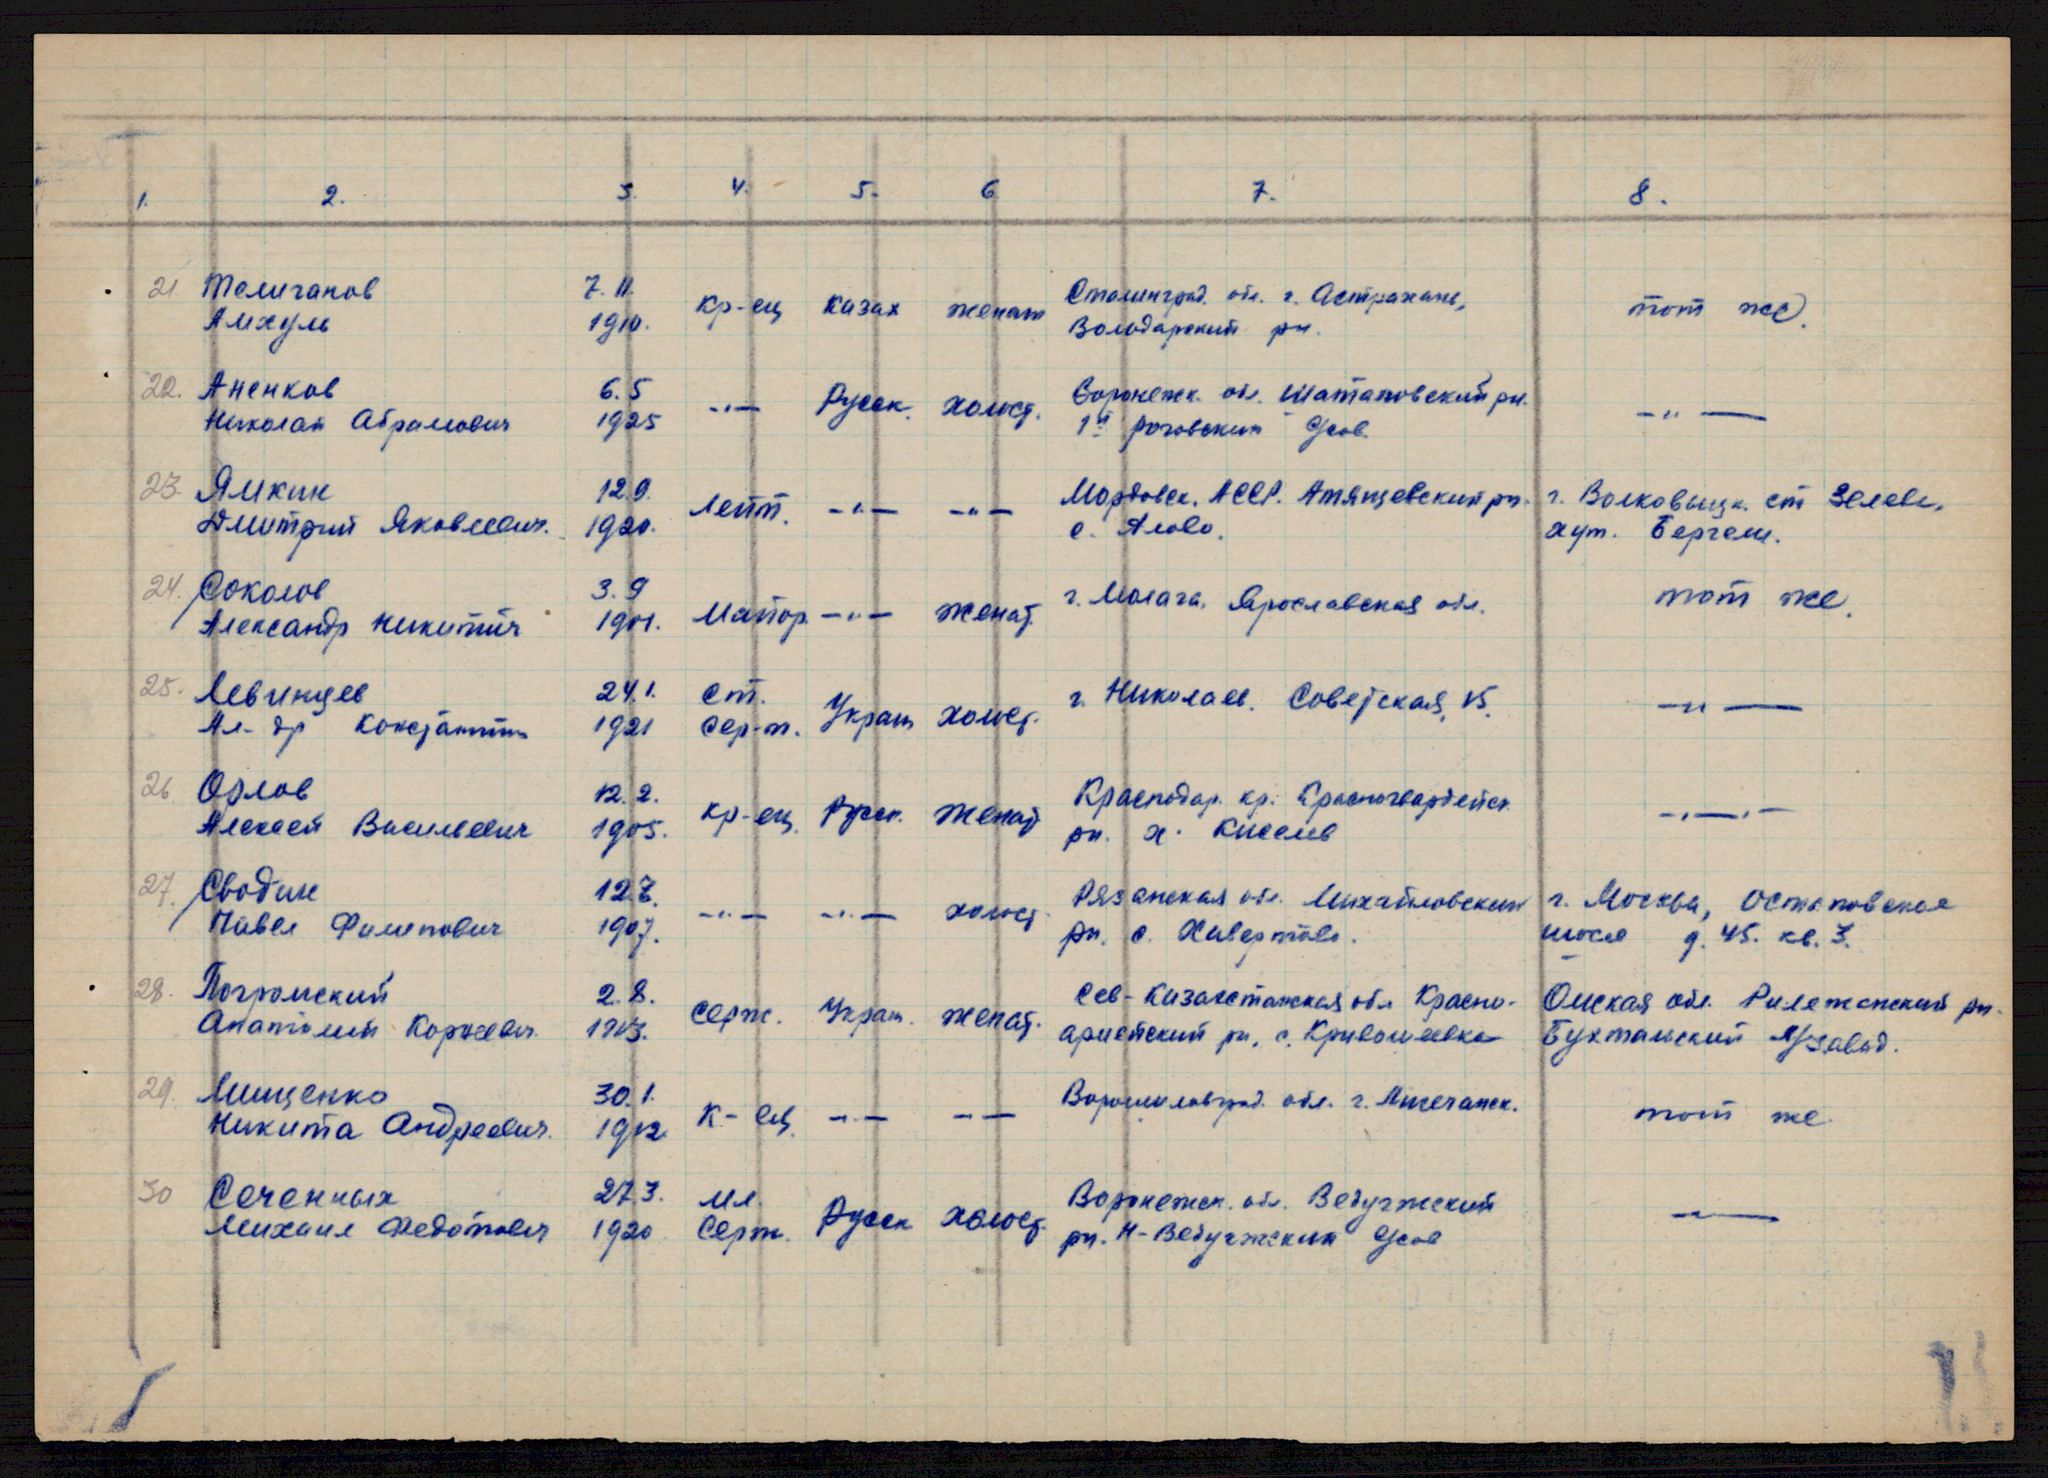 1. 2. 3. 4. 5. 6 7. 8.
21. Теличанов 7.11. Сталинград. обл. г. Астрахань,
Амхуль 1910. Кр-ец Казах женат Володарский рн. тот же.
22. Аненков 6.5 Воронежск. обл. Шаталовский рн.
Николай Абрамович 1925 -"- Русск. холост. 1й Роговский с/сов. -"-
23. Ямкин 12.9. Мордовск. АССР. Атяшевский рн. г. Волковыцк. ст Зелеве,
Дмитрий Яковлевич. 1920. Лейт. -"- -"- с. Алово. хут. Бергели.
24. Соколов 3.9 г. Молага, Ярославская обл. тот же.
Александр Никитич 1901. Майор -"- женат.
25. Левинцев 24.1. Ст. г. Николаев. Советская, 15. -"-
Ал-др Константин 1921 Сер-т. Украин холост.
26. Орлов 12.2. Краснодар. кр. Красногвардейск.
Алексей Васильевич 1905. Кр-ец. Русск. Женат рн. х. Киселев -"-
27. Сводин 12.7. Рязанская обл. Михайловский г. Москва, Остаповское
Павел Филипович 1907. -"- -"- холост. рн. с. Хавертово. шосе д. 45. кв. 3.
28. Погромский 2.8. Сев-Казахстанская обл Красно- Омская обл.
Анатолий Корнеевич 1903. Серж. Украин. женат. армейский рн, с. Кривошеевка
29. Мищенко 30.1. Ворошиловград. обл. г. Лисичанск.
Никита Андреевич. 1912 К-ец. -"- -"- тот же.
30 Сеченных 27.3. Мл. Воронежск. обл. Ведугжский
Михаил Федотович 1920 Серж. Русск холост. рн. Н-Ведугжский с/сов -"-